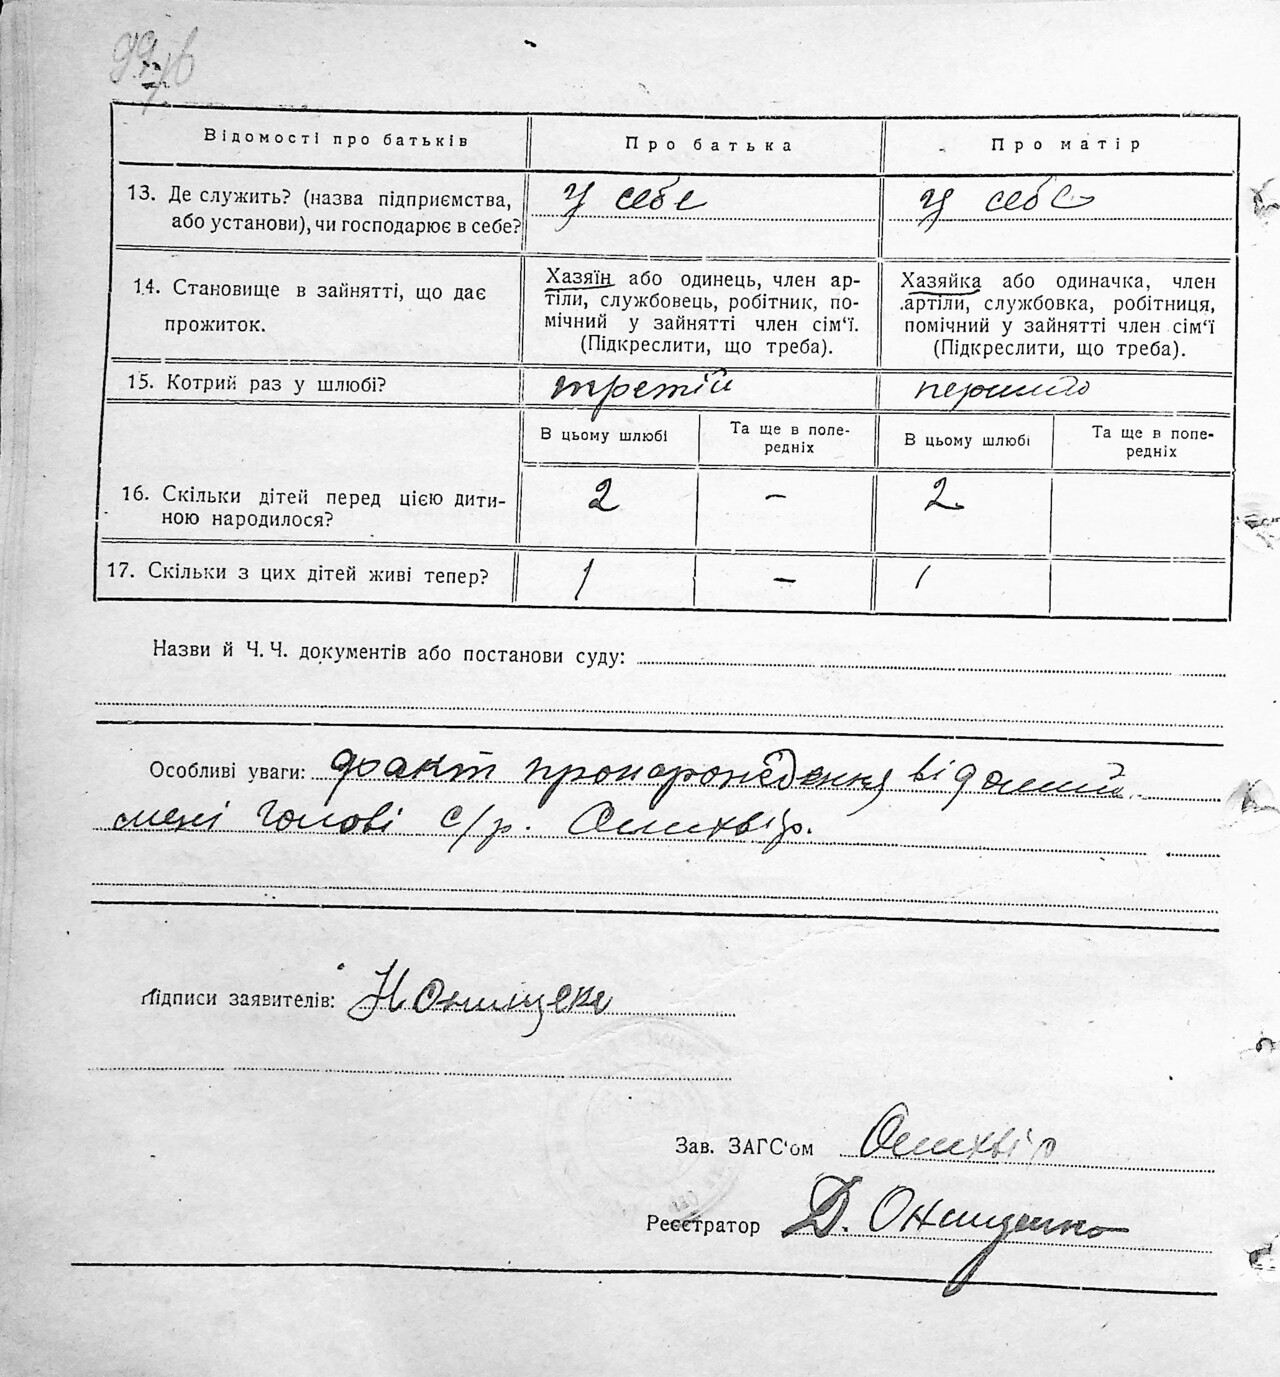 Відомості про батьків
Про батька
Про матір
13. Де служить? (назва підприємства,
або установи), чи господарює в себе?
у себе
у себе
14. Становище в зайнятті, що дає
прожиток.
Хазяїн або одинець, член ар-
тіли, службовець, робітник, по-
мічний у зайнятті член сім'ї.
(Підкреслити, що треба).
Хазяйка або одиначка, член
артіли, службовка, робітниця,
помічний у зайнятті член сім'ї
(Підкреслити, що треба).
15. Котрий раз у шлюбі?
третій
В цьому шлюбі
Та ще в попе-
редніх
В цьому шлюбі
Та ще в попе-
редніх
16. Скільки дітей перед цією дити-
ною народилося?
2
–
2
17. Скільки з цих дітей живі тепер?
1
–
1
Назви й Ч. Ч. документів або постанови суду:
Особливі уваги: факт відомий
мені голові с/р.
Підписи заявителів: Н Онищенко
Зав. ЗАГС'ом
Реєстратор Д. Онищенко